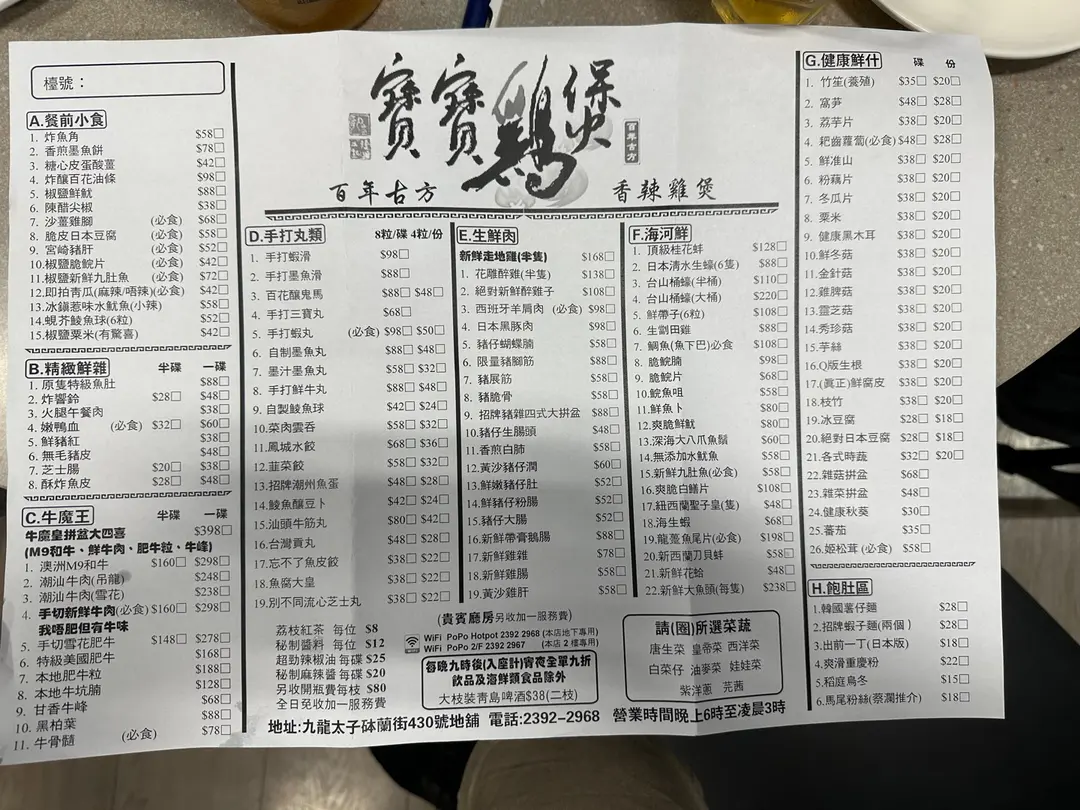 檯號：
寶寶鷄煲
百年古方
百年古方 香辣雞煲
A.餐前小食
1. 炸魚角 $58
2. 香煎墨魚餅 $78
3. 糖心皮蛋酸薑 $42
4. 炸釀百花油條 $98
5. 椒鹽鮮魷 $88
6. 陳醋尖椒 $38
7. 沙薑雞腳 (必食) $68
8. 脆皮日本豆腐 (必食) $58
9. 宮崎豬肝 (必食) $52
10.椒鹽脆鯇片 (必食) $42
11.椒鹽新鮮九肚魚 (必食) $72
12.即拍青瓜(麻辣/唔辣)(必食) $42
13.冰鎮惹味水魷魚(小辣) $58
14.蜆芥鯪魚球(6粒) $52
15.椒鹽粟米(有驚喜) $42
B.精緻鮮雜 半碟 一碟
1. 原隻特級魚肚 $88
2. 炸響鈴 $28 $48
3. 火腿午餐肉 $38
4. 嫩鴨血 (必食) $32 $60
5. 鮮豬紅 $38
6. 無毛豬皮 $48
7. 芝士腸 $20 $38
8. 酥炸魚皮 $28 $48
C.牛魔王 半碟 一碟
牛魔皇拼盆大四喜 $398
(M9和牛、鮮牛肉、肥牛粒、牛峰)
1. 澳洲M9和牛 $160 $298
2. 潮汕牛肉(吊龍) $248
3. 潮汕牛肉(雪花) $238
4. 手切新鮮牛肉(必食) $160 $298
我唔肥但有牛味
5. 手切雪花肥牛 $148 $278
6. 特級美國肥牛 $168
7. 本地肥牛粒 $188
8. 本地牛坑腩 $128
9. 甘香牛峰 $68
10. 黑柏葉 $88
11. 牛骨髓 (必食) $78
D.手打丸類 8粒/碟 4粒/份
1. 手打蝦滑 $98
2. 手打墨魚滑 $88
3. 百花釀鬼馬 $88 $48
4. 手打三寶丸 $68
5. 手打蝦丸 (必食) $98 $50
6. 自制墨魚丸 $88 $48
7. 墨汁墨魚丸 $58 $32
8. 手打鮮牛丸 $88 $48
9. 自製鯪魚球 $42 $24
10.菜肉雲吞 $58 $32
11.鳳城水餃 $68 $36
12.韮菜餃 $58 $32
13.招牌潮州魚蛋 $48 $28
14.鯪魚釀豆卜 $42 $24
15.汕頭牛筋丸 $80 $42
16.台灣貢丸 $48 $28
17.忘不了魚皮餃 $38 $22
18.魚窩大皇 $38 $22
19.別不同流心芝士丸 $38 $22
E.生鮮肉
新鮮走地雞(半隻) $168
1. 花雕醉雞(半隻) $138
2. 絕對新鮮醉雞子 $108
3. 西班牙羊肩肉 (必食) $98
4. 日本黑豚肉 $98
5. 豬仔蝴蝶腩 $58
6. 限量豬腳筋 $88
7. 豬展筋 $58
8. 豬脆骨 $58
9. 招牌豬雜四式大拼盆 $88
10.豬仔生腸頭 $48
11.香煎白肺 $58
12.黃沙豬仔潤 $60
13.鮮嫩豬仔肚 $52
14.鮮豬仔粉腸 $52
15.豬仔大腸 $52
16.新鮮帶膏鵝腸 $88
17.新鮮雞雜 $78
18.新鮮雞腸 $58
19.黃沙雞肝 $58
F.海河鮮
1. 頂級桂花蚌 $128
2. 日本清水生蠔(6隻) $88
3. 台山桶蠔(半桶) $110
4. 台山桶蠔(大桶) $220
5. 鮮帶子(6粒) $108
6. 生劏田雞 $88
7. 鯛魚(魚下巴)必食 $108
8. 脆鯇腩 $98
9. 脆鯇片 $68
10.鯇魚咀 $58
11.鮮魚卜 $80
12.爽脆鮮魷 $80
13.深海大八爪魚鬚 $60
14.無添加水魷魚 $58
15.新鮮九肚魚(必食) $58
16.爽脆白鱔片 $108
17.紐西蘭聖子皇(隻) $48
18.海生蝦 $68
19.龍躉魚尾片(必食) $198
20.新西蘭刀貝蚌 $58
21.新鮮花蛤 $48
22.新鮮大魚頭(每隻) $238
G.健康鮮什 碟 份
1. 竹笙(養殖) $35 $20
2. 窩筍 $48 $28
3. 荔芋片 $38 $20
4. 耙齒蘿蔔(必食) $48 $28
5. 鮮准山 $38 $20
6. 粉藕片 $38 $20
7. 冬瓜片 $38 $20
8. 粟米 $38 $20
9. 健康黑木耳 $38 $20
10.鮮冬菇 $38 $20
11.金針菇 $38 $20
12.雞脾菇 $38 $20
13.靈芝菇 $38 $20
14.秀珍菇 $38 $20
15.芋絲 $38 $20
16.Q版生根 $38 $20
17.(真正)鮮腐皮 $38 $20
18.枝竹 $38 $20
19.冰豆腐 $28 $18
20.絕對日本豆腐 $28 $18
21.各式時蔬 $32 $20
22.雜菇拼盆 $68
23.雜菜拼盆 $48
24.健康秋葵 $30
25.番茄 $35
26.姬松茸 (必食) $58
H.飽肚區
1.韓國薯仔麵 $28
2.招牌蝦子麵(兩個) $28
3.出前一丁(日本版) $18
4.爽滑重慶粉 $22
5.稻庭烏冬 $15
6.馬尾粉絲(蔡瀾推介) $18
荔枝紅茶 每位 $8
秘制醬料 每位 $12
超勁辣椒油 每碟 $25
秘制麻辣醬 每碟 $20
另收開瓶費每枝 $80
全日免收加一服務費
(貴賓廳房另收加一服務費)
WiFi PoPo Hotpot 2392 2968 (本店地下專用)
WiFi PoPo 2/F 2392 2967 (本店 2 樓專用)
每晚九時後(入座計)宵夜全單九折
飲品及海鮮類食品除外
大枝裝靑島啤酒$38(二枝)
請(圈)所選菜蔬
唐生菜 皇帝菜 西洋菜
白菜仔 油麥菜 娃娃菜
紫洋蔥 芫茜
地址:九龍太子砵蘭街430號地舖 電話:2392-2968 營業時間晚上6時至凌晨3時